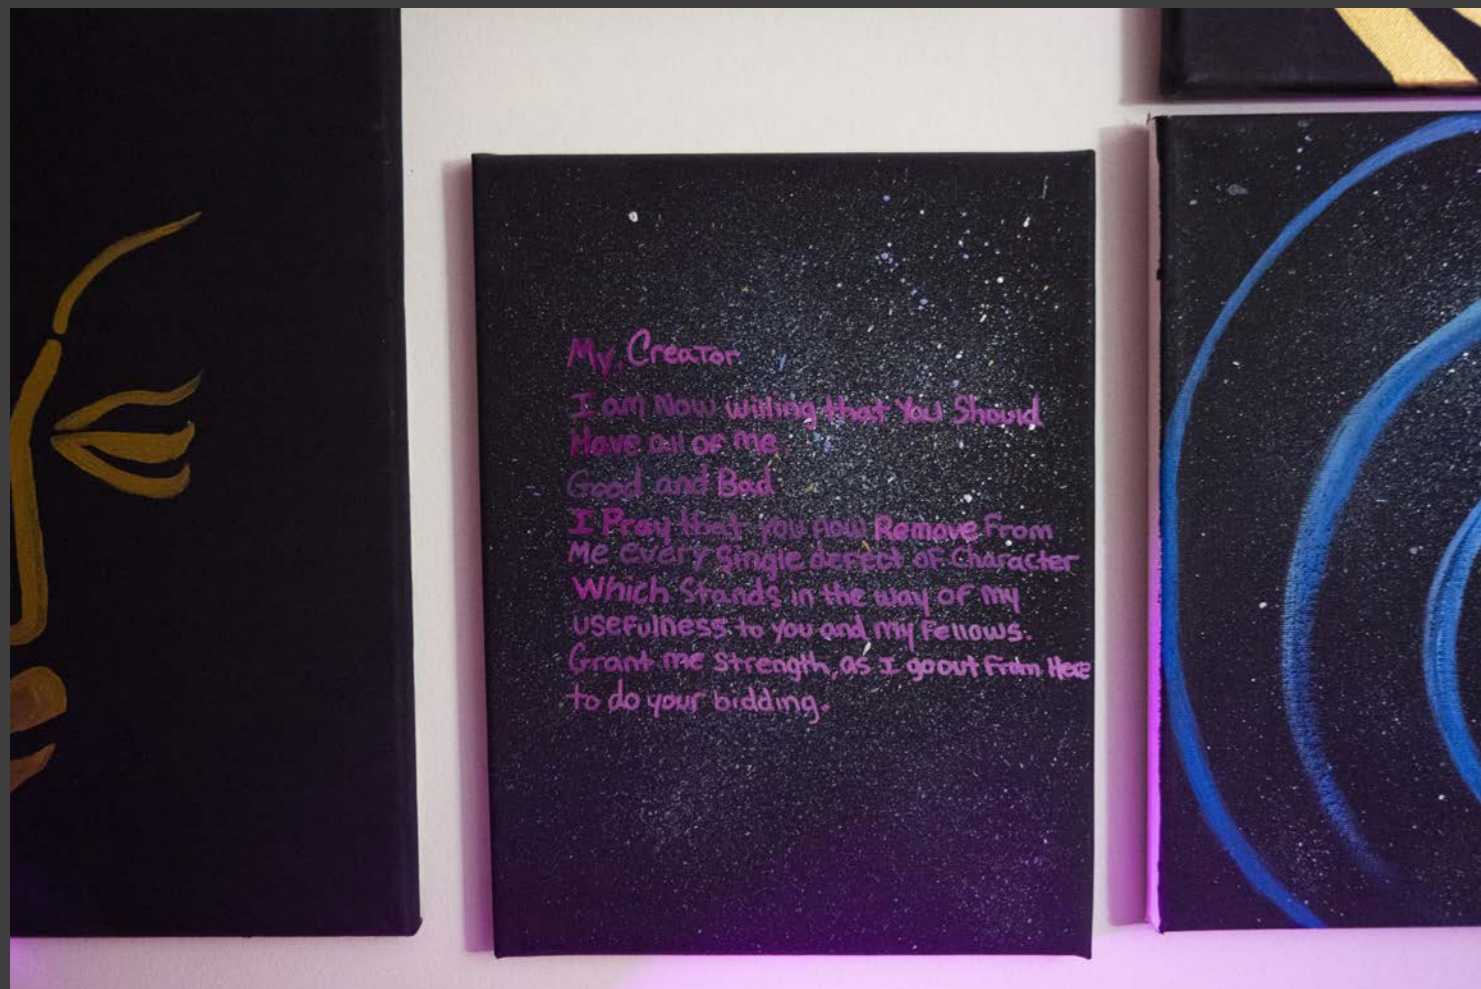 My, Creator
I am Now willing that You Should
Have all of me.
Good and Bad
I Pray that you now Remove From
Me every Single defect of Character
Which Stands in the way of my
usefulness to you and my Fellows.
Grant me Strength, as I go out From Here
to do your bidding.